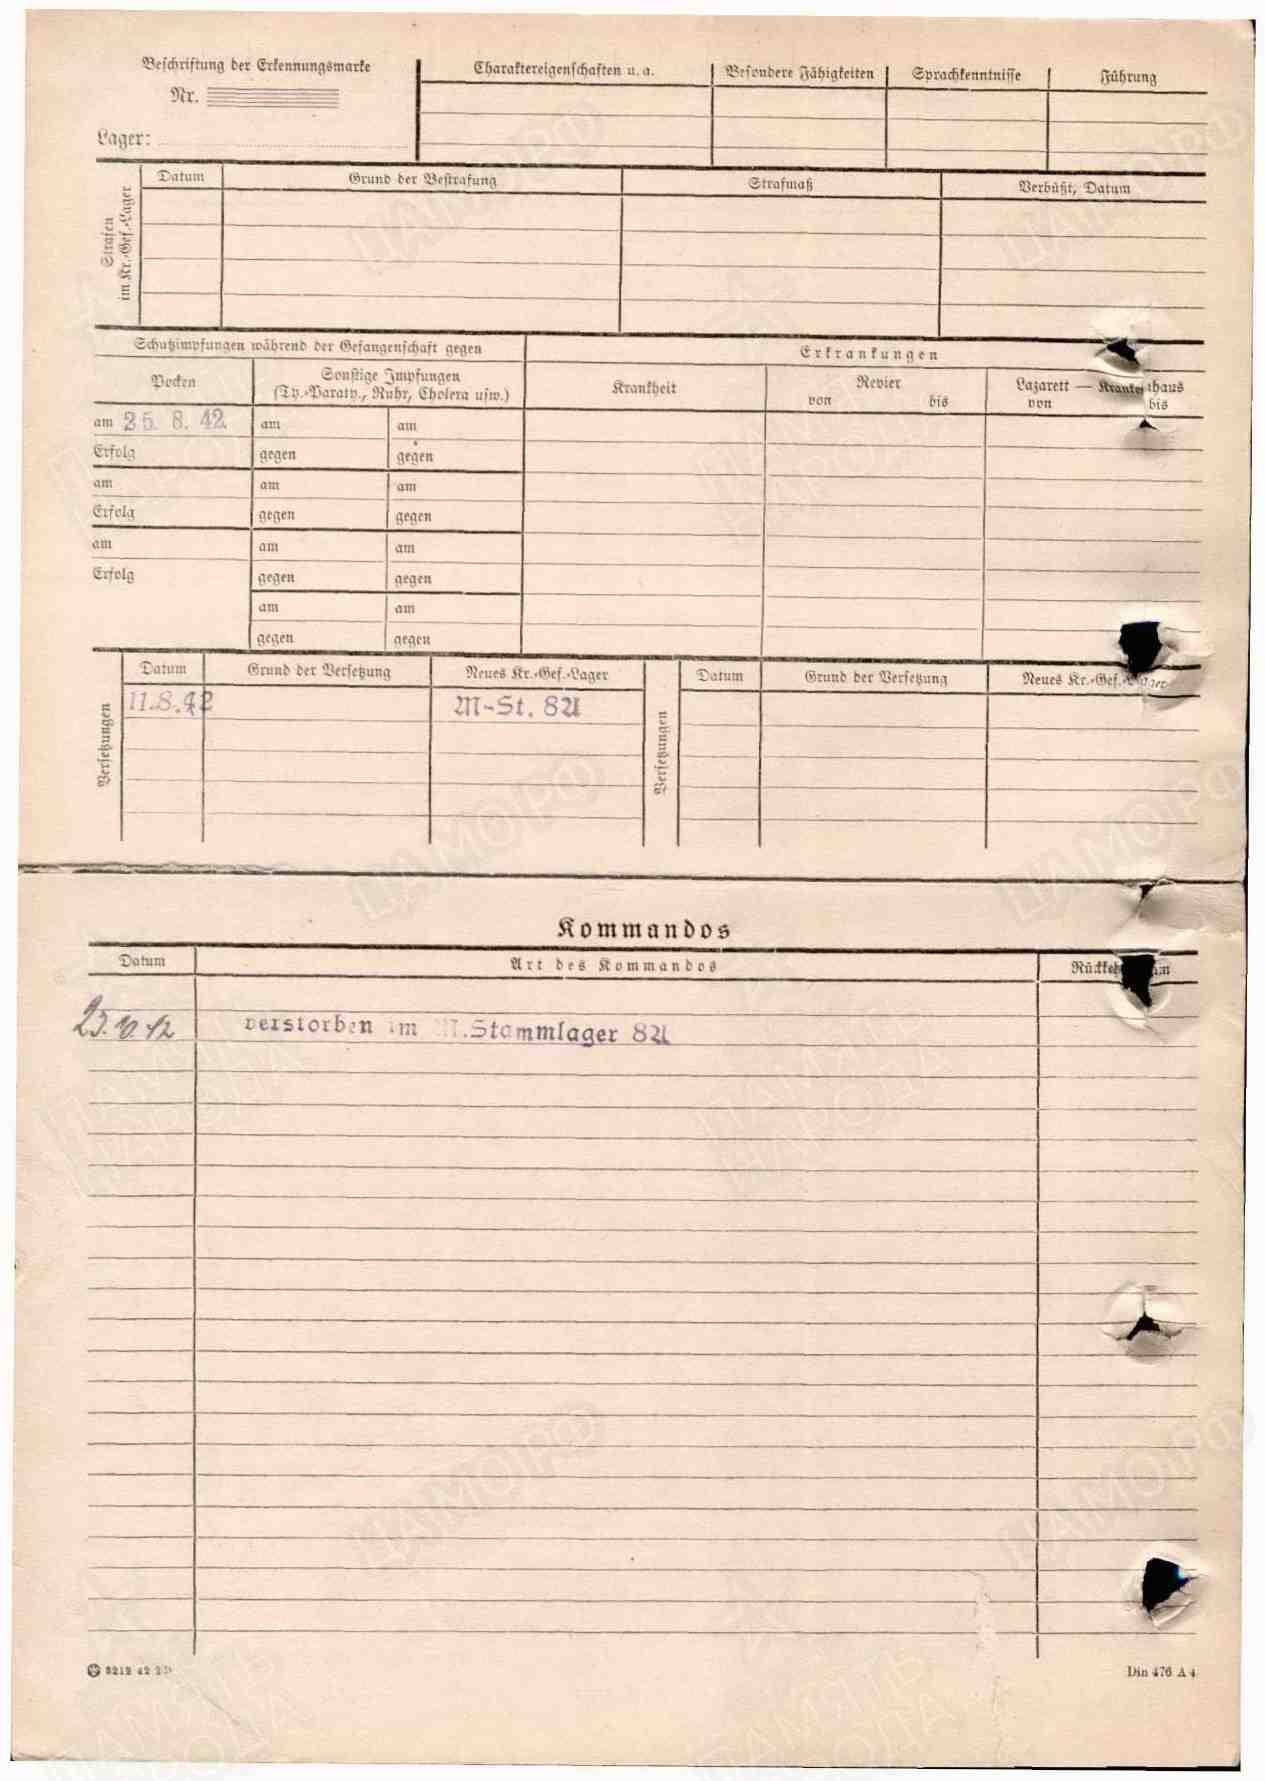 Beschriftung der Erkennungsmarke
Nr.
Lager:
Charaktereigenschaften u. a.
Besondere Fähigkeiten
Sprachkenntnisse
Führung
Strafen
im Kr.-Gef.-Lager
Datum
Grund der Bestrafung
Strafmaß
Verbüßt, Datum
Schutzimpfungen während der Gefangenschaft gegen
Erkrankungen
Pocken
Sonstige Impfungen
(Ty.-Paraty., Ruhr, Cholera usw.)
Krankheit
Revier
von bis
Lazarett — Krankenhaus
von bis
am 25. 8. 42 am am
Erfolg gegen gegen
am am am
Erfolg gegen gegen
am am am
Erfolg gegen gegen
am am
gegen gegen
Versetzungen
Datum Grund der Versetzung Neues Kr.-Gef.-Lager
11.8.42 M-St. 8A
Versetzungen
Datum Grund der Versetzung Neues Kr.-Gef.-Lager
Kommandos
Datum Art des Kommandos
23.10.42 verstorben im M.Stammlager 8A
8212 42
Din 476 A 4
ЦАМО РФ
ПАМЯТЬ
НАРОДА